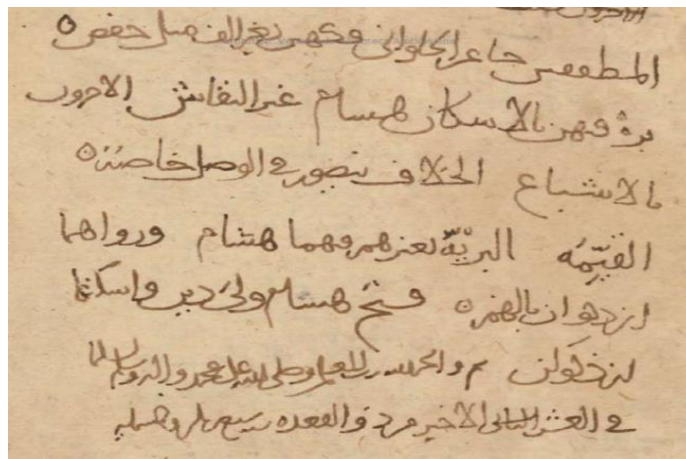 الاخرون
المطففين جا عن الحلواني فكهين بغير الف مثل حفص ٥
يره فيهن بالاسكان هشام غير النقاش الاخرون
بالاشباع الخلاف يتصور في الوصل خاصة ٥
القيّمه البريّة بغير همز فيهما هشام ورواهما
ابن ذكوان بالهمز ٥ فتح هشام ولي دين واسكنها
ابن ذكوان تم والحمد لله وصلى الله على محمد واله وسلم
في العشر الاخير من ذو القعده سبع